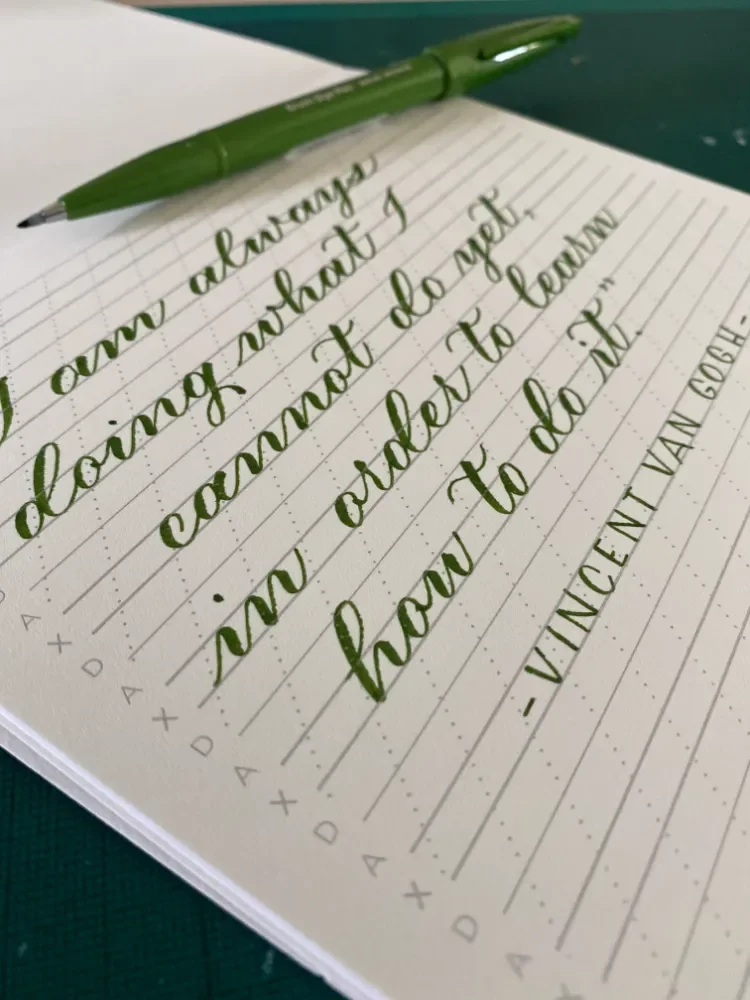 I am always
doing what I
cannot do yet,
in order to learn
how to do it."
-VINCENT VAN GOGH-
A
X
D
A
X
D
A
X
D
A
X
D
A